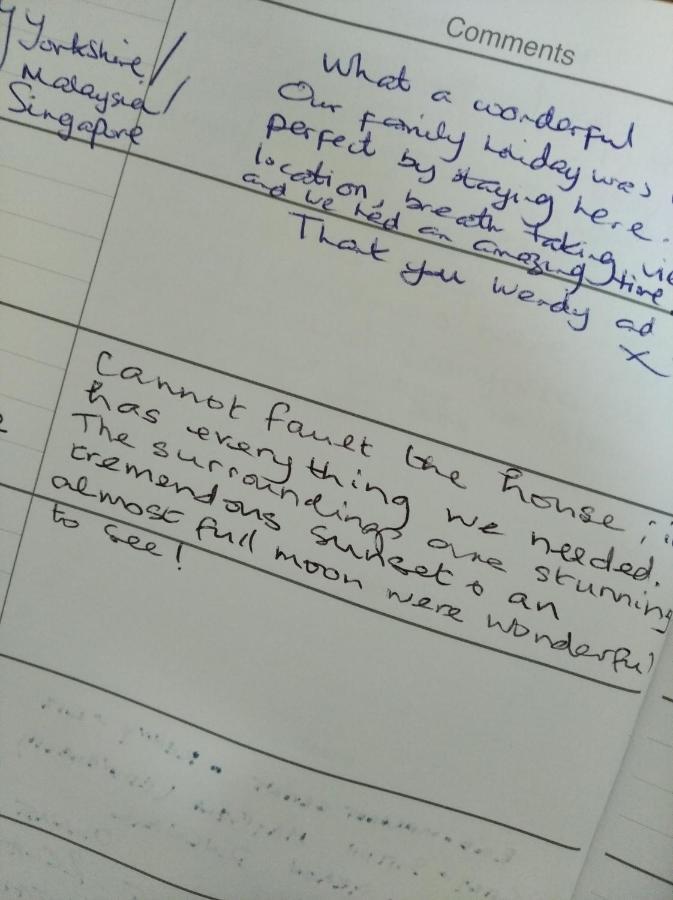 Comments
Yorkshire/
Malaysia/
Singapore
What a wonderful
Our family holiday was
perfect by staying here.
location, breath taking
and we had an amazing time
Thank you Wendy ad
x
Cannot fault the house;
has everything we needed.
The surroundings are stunning
tremendous sunset & an
almost full moon were wonderful
to see!